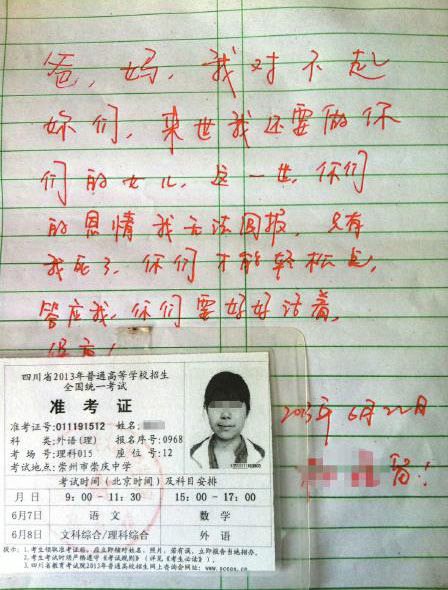 爸，妈，我对不起
妳们，来世我还要做你
们的女儿，这一世，你们
的恩情我无法回报，只有
我死了，你们才能轻松点，
答应我，你们要好好活着，
2013年6月22日
留！
四川省2013年普通高等学校招生
全国统一考试
准考证
准考证号:011191512 姓名:
科 类:外语(理) 报名序号:0968
考 场 号:理科015 座 位 号:12
考试地点:崇州市崇庆中学
考试时间(北京时间)及科目安排
月 日 9:00-11:30 15:00-17:00
6月7日 语文 数学
6月8日 文科综合/理科综合 外语
提示:1.考生领取准考证后,应立即核对姓名、照片,若有误,立即报告当地招办。
2.考生考试时须严格遵守《考试规则》(详见《考生必读》)。
3.四川省教育考试院2013年普通高校招生网上咨询会网址:www.sceea.cn